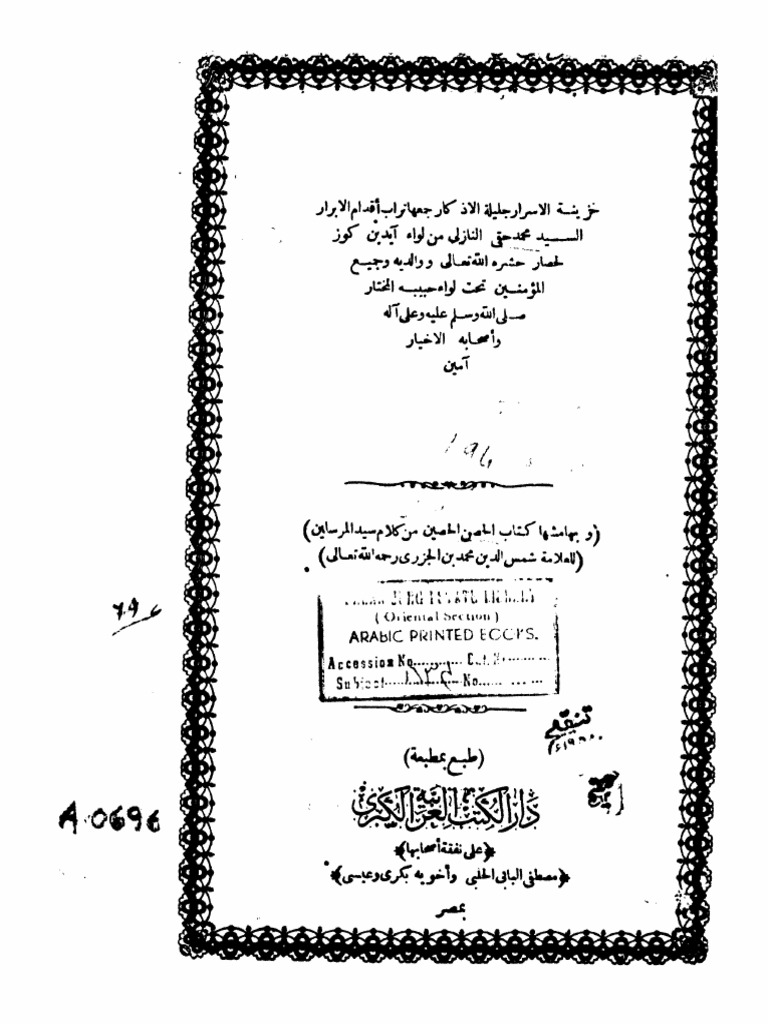 خزينة الاسرار جليلة الاذكار جمعها تراب أقدام الابرار
السيد محمد حقى النازلى من لواء آيدين كوز
لحصار حشره الله تعالى ووالديه وجميع
المؤمنين تحت لواء حبيبه المختار
صلى الله وسلم عليه وعلى آله
وأصحابه الاخيار
آمين
(وبهامشها كتاب الحصن الحصين من كلام سيد المرسلين)
(للعلامة شمس الدين محمد بن الجزرى رحمه الله تعالى)
٦٩٤
(Oriental Section)
ARABIC PRINTED BOOKS.
Accession No......... Cat. No.........
Subject......... No.........
(طبع بمطبعة)
دار الكتب العربية الكبرى
﴿على نفقة أصحابها﴾
﴿مصطفى البابى الحلبى وأخويه بكرى وعيسى﴾
بمصر
A.0696